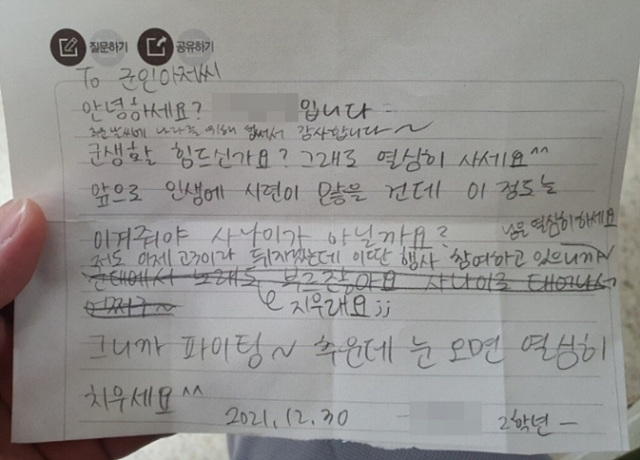 질문하기 공유하기
To 군인아저씨
안녕하세요? 입니다
추운 날씨에 나라를 위해 힘써서 감사합니다~
군생활 힘드신가요? 그래도 열심히 사세요^^
앞으로 인생에 시련이 많을 건데 이 정도는
이겨줘야 사나이가 아닐까요?
저도 이제 고3이라 뒤지겠는데 이딴 행사 참여하고 있으니까~
님은 열심히 하세요
군대에서 노래도 부르잖아요 사나이로 태어나서
어쩌구~
지우래요;;
그니까 파이팅~ 추운데 눈 오면 열심히
치우세요^^
2021.12.30 2학년 -